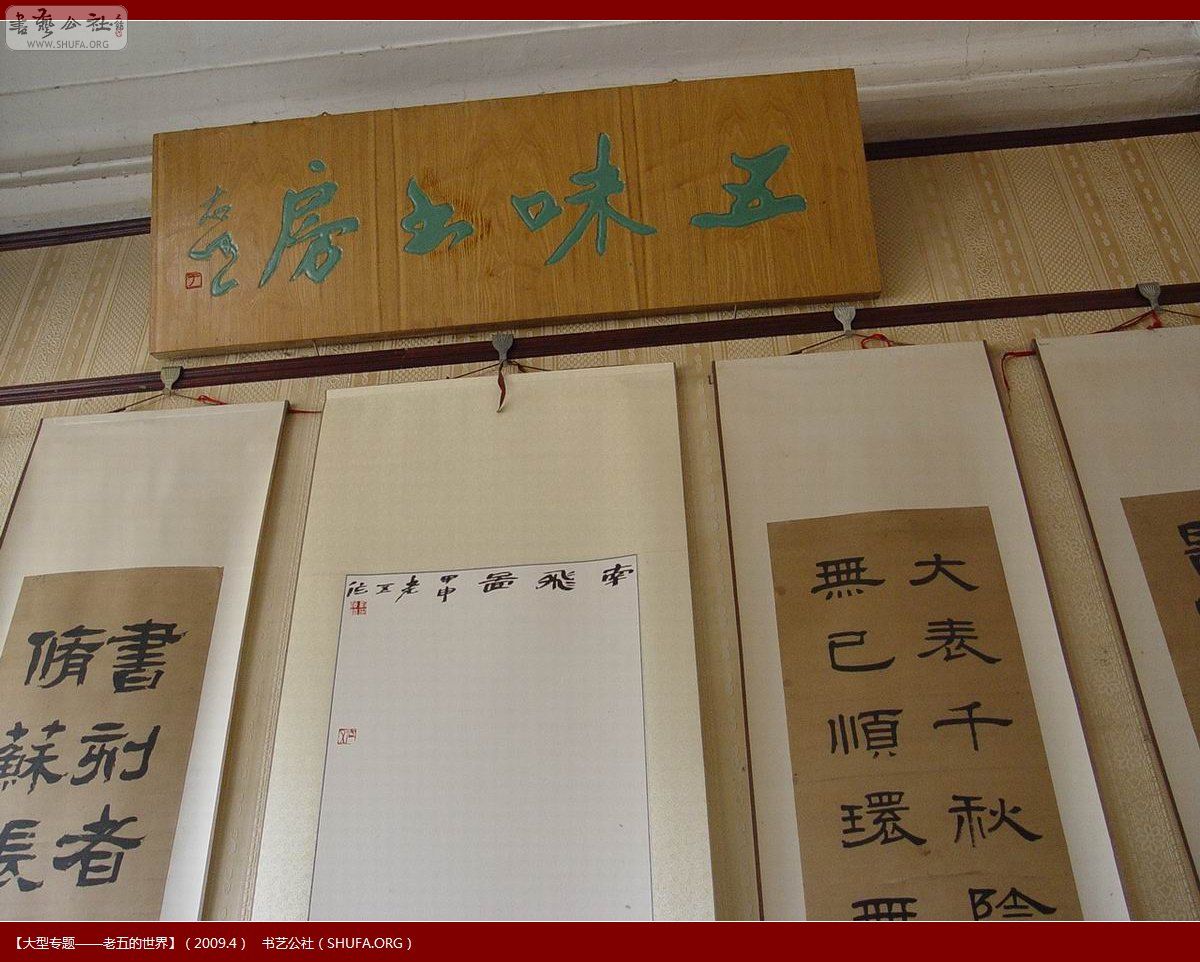 书艺公社
WWW.SHUFA.ORG
五味书房
南飛啚甲申老五作
大表千秋陰
無已順環無
書刻者
脩蘇長
【大型专题——老五的世界】（2009.4） 书艺公社（SHUFA.ORG）